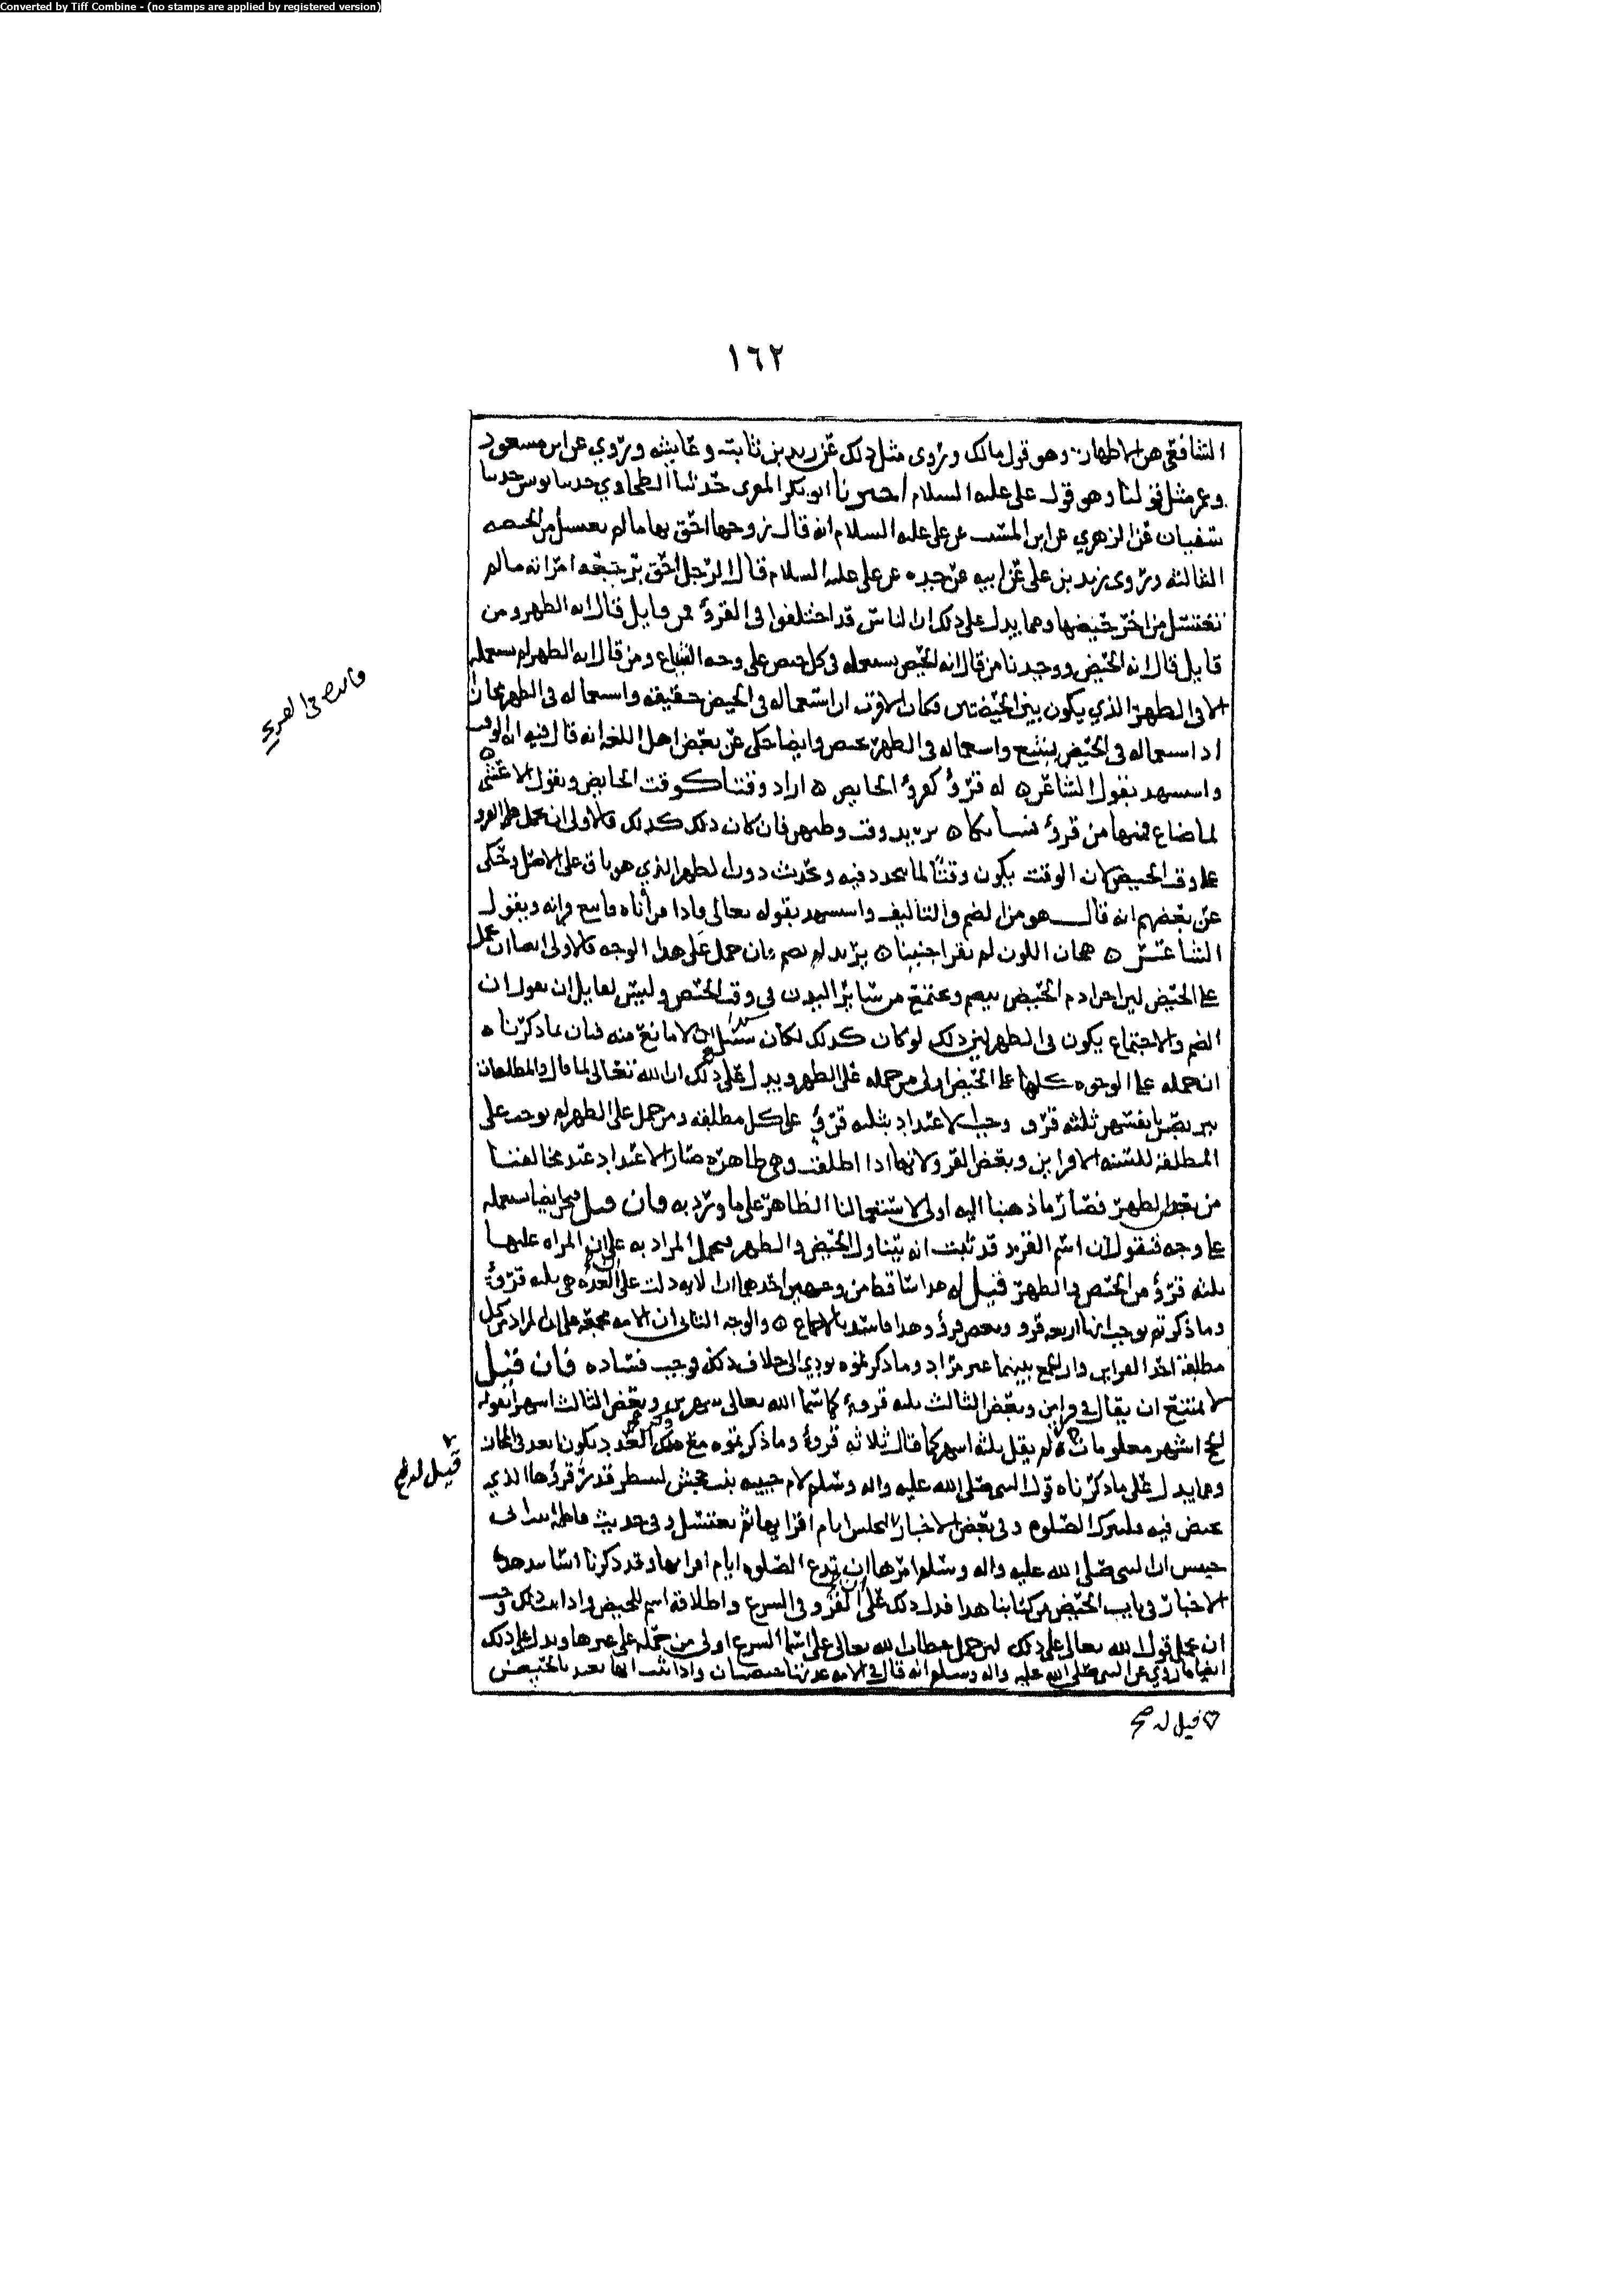 Converted by Tiff Combine - (no stamps are applied by registered version)
١٦٢
الشافعي هن الاطهار وهو قول مالك وروى مثل ذلك عن زيد بن ثابت وعايشه وروي عن ابن مسعود
وعمر مثل قولنا وهو قول على عليه السلام اخبرنا ابو بكر المقرى حدثنا الطحاوي حدثنا يونس حدثنا
سفيان عن الزهري عن ابن المسيب عن على عليه السلام انه قال زوجها احق بها مالم تغتسل من الحيضه
الثالثه وروى زيد بن على عن ابيه عن جده عن على عليه السلام قال الرجل احق برجعة امراته مالم
تغتسل من اخر حيضها ومما يدل على ذلك ان الناس قد اختلفوا في القرؤ فمن قايل قال انه الطهر ومن
قايل قال انه الحيض ووجدنا من قال انه الحيض يستعمله في كل حيض على وجه الشياع ومن قال انه الطهر لم يستعمله
الا في الطهر الذي يكون بين الحيضتين فكان الاقرب ان استعماله في الحيض حقيقه واستعماله في الطهر مجاز
اذ استعماله في الحيض يتسع واستعماله في الطهر يختص وايضا حكى عن بعض اهل اللغه انه قال فيه انه الوقت
واستشهد بقول الشاعر له قرؤ كقرؤ الحايض اراد وقتا كوقت الحايض وبقول الاعشى
لما ضاع فيها من قرؤ نسائكا يريد وقت وطهر فان كان ذلك كذلك فالاولى ان يحمل على القرو
على وقت الحيض لان الوقت يكون وقتا لما يتجدد فيه ويحدث دون الطهر الذي هو باق على الاصل وحكى
عن بعضهم انه قال هو من الضم والتاليف واستشهد بقوله تعالى فاذا قراناه فاتبع قرانه وبقول
الشاعر هجان اللون لم تقرا جنينا يريد لم تضم فان حمل على هذا الوجه فالاولى ايضا ان يحمل
على الحيض لان اجزا دم الحيض ينضم ويجتمع من سائر البدن في وقت الحيض وليس لقايل ان يقول ان
الضم والاجتماع يكون في الطهر لان ذلك لو كان كذلك لكان سيل الدم لا مانع منه فبان بما ذكرناه
ان حمله على الوجوه كلها على الحيض اولى من حمله على الطهر ويدل على ذلك ان الله تعالى لما قال والمطلقات
يتربصن بانفسهن ثلثه قرؤ وجب الاعتداد بثلثه قرؤ على كل مطلقه ومن حمل على الطهر لم يوجب على
المطلقه للسنه الا قراين وبعض القرو لانها اذا اطلقت وهي طاهره صار الاعتداد عند مخالفنا
من بعض الطهر فصار ماذهبنا اليه اولى لاستعمالنا الظاهر على ماورد به فان قيل فنحن ايضا نستعمله
على وجه فنقول ان اسم القرؤ قد ثبت انه يتناول الحيض والطهر فيحمل المراد به على ان المراه عليها
ثلثه قرؤ من الحيض والطهر قيل له هذا ساقط من وجهين احدهما ان الايه دلت على ان العده هي ثلثه قرؤ
وما ذكرتم يوجب انها اربعه قرو وبعض قرؤ وهذا فاسد بالاجماع والوجه الثاني ان الامه مجمعه على ان المراد من كل
مطلقه احد القراين وان الجمع بينهما غير مراد وما ذكرتموه يودي الى خلاف ذلك فوجب فساده فان قيل
لا يمتنع ان يقال في قراين وبعض الثالث ثلثه قروء كما سما الله تعالى شهرين وبعض الثالث اشهرا بقوله
الحج اشهر معلومات لم يقل ثلثه اشهر كما قال ثلاثه قروء وما ذكرتموه مع ذكر العدد يكون ابعد في المجاز
ومما يدل على ماذكرناه قول النبي صلى الله عليه واله وسلم لام حبيبه بنت جحش لتنظر قدر قرؤها الذي
تحيض فيه فلتترك الصلوه وفي بعض الاخبار لتجلس ايام اقرايها ثم تغتسل وفي حديث فاطمه بنت ابي
حبيش ان النبي صلى الله عليه واله وسلم امرها ان تدع الصلوه ايام اقرايها وقد ذكرنا اسانيد هذه
الاخبار في باب الحيض من كتابنا هذا فدل ذلك على ان القرؤ في الشرع واطلاقه اسم للحيض واذا ثبت ذلك وجب
ان يحمل قول الله تعالى على ذلك لان حمل خطاب الله تعالى على اسما الشرع اولى من حمله على غيرها ويدل على ذلك
ايضا ماروي عن النبي صلى الله عليه واله وسلم انه قال في الامه عدتها حيضتان واذا ثبت انها تعتد بالحيض
قيل له صح
قيل له صح